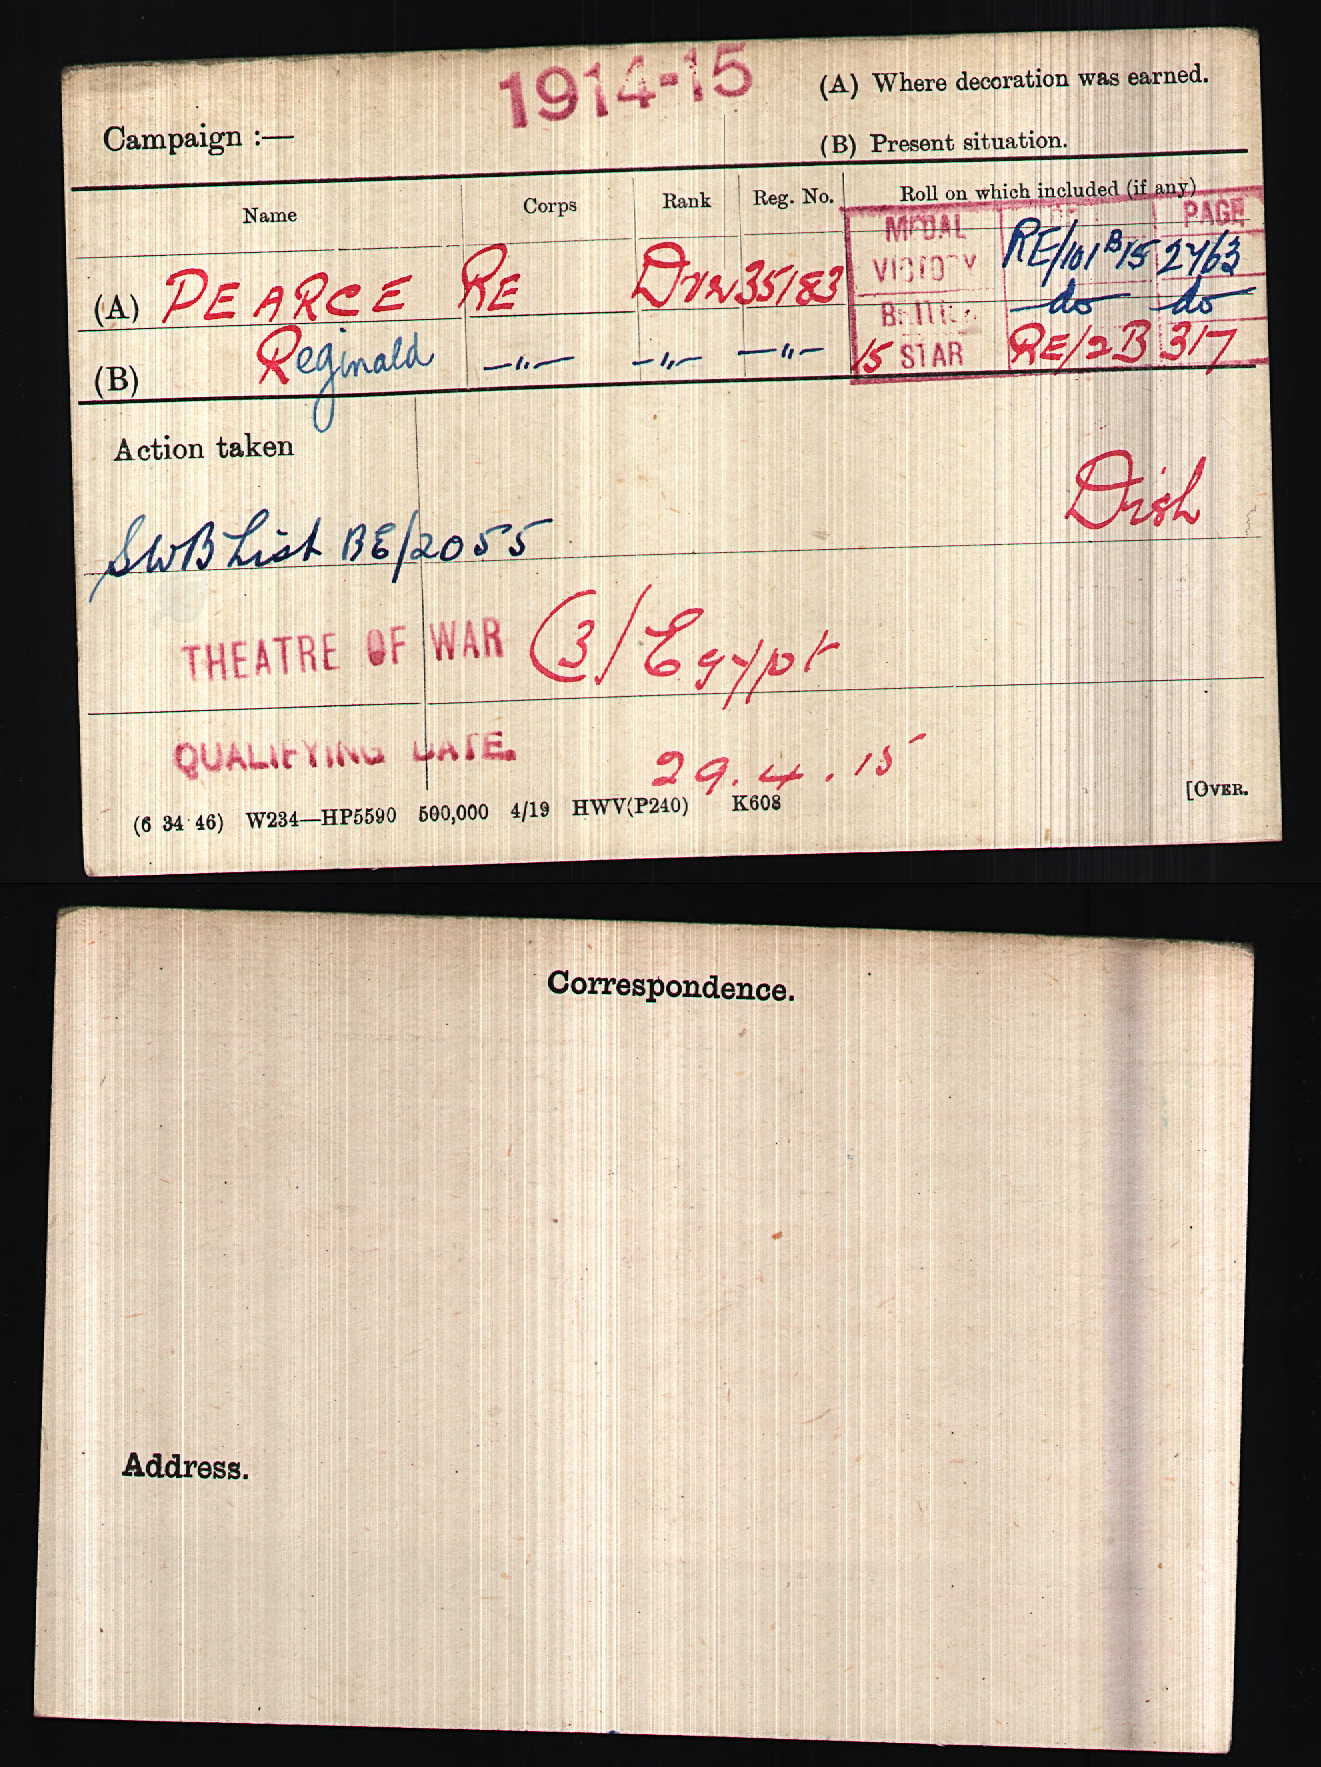 1914-15
(A) Where decoration was earned.
Campaign :—
(B) Present situation.
Name Corps Rank Reg. No. Roll on which included (if any)
MEDAL PAGE
(A) PEARCE RE Dvr 35183 VICTORY RE/101 B15 2463
BRITISH do do
(B) Reginald —"— —"— —"— 15 STAR RE/2B 317
Action taken
Disch
SWB List BE/2055
THEATRE OF WAR (3) Egypt
QUALIFYING DATE. 29.4.15
(6 34 46) W234—HP5590 500,000 4/19 HWV(P240) K608 [OVER.
Correspondence.
Address.